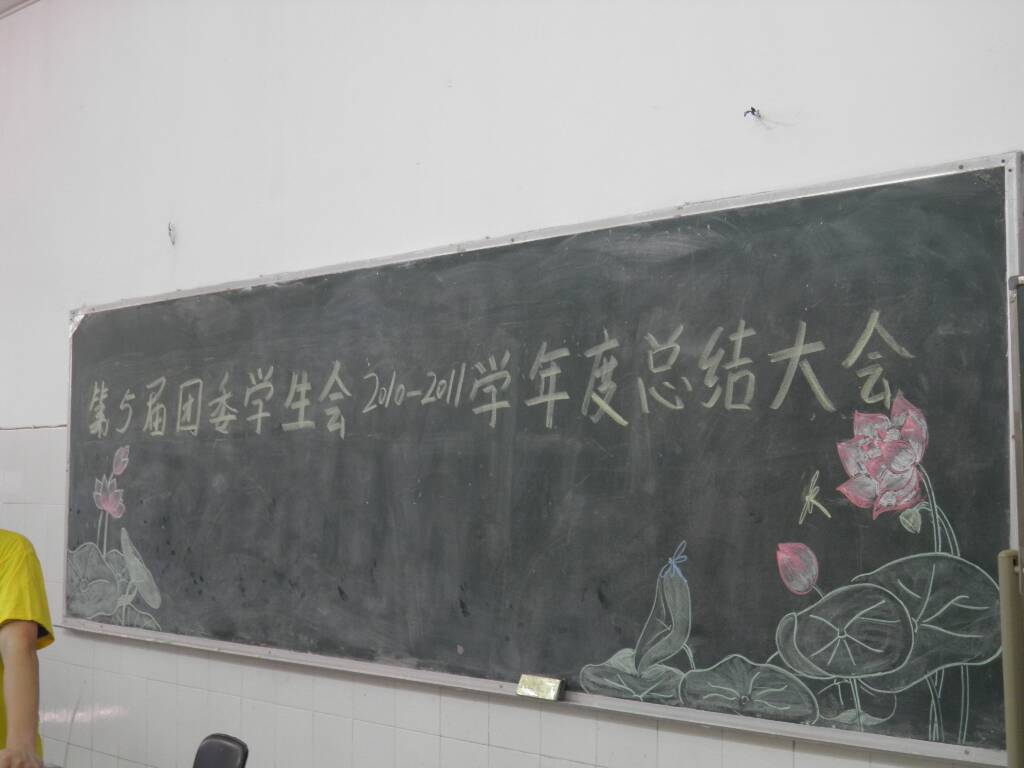 第5届团委学生会2010-2011学年度总结大会